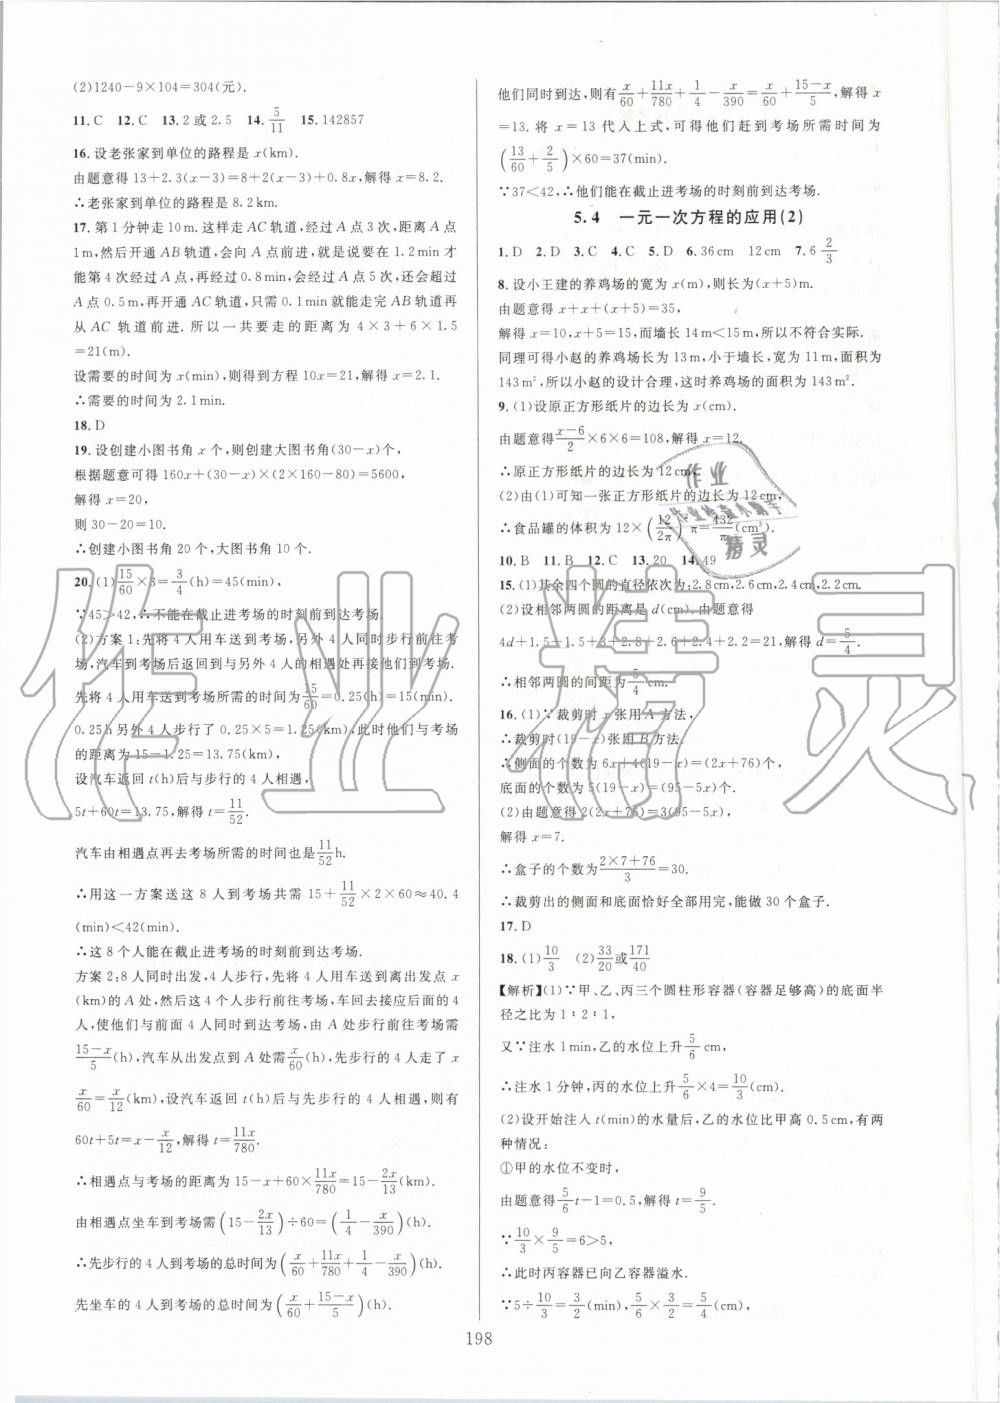 (2)1240－9×104＝304(元).
11. C　12. C　13. 2 或 2.5　14. 5/11　15. 142857
16. 设老张家到单位的路程是 x(km).
由题意得 13＋2.3(x－3)＝8＋2(x－3)＋0.8x,解得 x＝8.2.
∴老张家到单位的路程是 8.2km.
17. 第 1 分钟走 10 m. 这样走 AC 轨道,经过 A 点 3 次,距离 A 点
1 m,然后开通 AB 轨道,会向 A 点前进,就是说要在 1.2 min 才
能第 4 次经过 A 点,再经过 0.8 min,会经过 A 点 5 次,还会超过
A 点 0.5 m,再开通 AC 轨道,只需 0.1 min 就能走完 AB 轨道再
从 AC 轨道前进. 所以一共要走的距离为 4×3＋6×1.5
＝21(m).
设需要的时间为 x(min),则得到方程 10x＝21,解得 x＝2.1.
∴需要的时间为 2.1 min.
18. D
19. 设创建小图书角 x 个,则创建大图书角(30－x)个,
根据题意可得 160x＋(30－x)×(160＋80)＝5600,
解得 x＝20,
则 30－20＝10.
∴创建小图书角 20 个,大图书角 10 个.
20. (1)15/60×3＝3/4(h)＝45(min),
∵45＞42,∴不能在截止进考场的时刻前到达考场.
(2)方案 1:先将 4 人用车送到考场,另外 4 人同时步行前往考
场,汽车到考场后返回到与另外 4 人的相遇处再接他们到考场.
先将 4 人用车送到考场所需的时间为15/60＝0.25(h)＝15(min),
0.25h 另外 4 人步行了 0.25×5＝1.25(km),此时他们与考场
的距离为 15－1.25＝13.75(km),
设汽车返回 t(h)后与步行的 4 人相遇,
5t＋60t＝13.75,解得 t＝11/52.
汽车由相遇点再去考场所需的时间也是11/52h.
∴用这一方案送这 8 人到考场共需 15＋11/52×2×60≈40.4
(min)＜42(min).
∴这 8 个人能在截止进考场的时刻前到达考场.
方案 2:8 人同时出发,4 人步行,先将 4 人用车送到离出发点 x
(km)的 A 处,然后这 4 个人步行前往考场,车回去接应后面的 4
人,使他们与前面 4 人同时到达考场,由 A 处步行前考场需
(15－x)/5(h),汽车从出发点到 A 处需x/60(h),先步行的 4 人走了 x
x/60＝x/12(km),设汽车返回 t(h)后与先步行的 4 人相遇,则有
60t＋5t＝x－x/12,解得 t＝11x/780.
∴相遇点与考场的距离为 15－x＋60×11x/780＝15－2x/13(km).
由相遇点坐车到考场需(15－2x/13)÷60＝(1/4－x/390)(h).
∴先步行的 4 人到考场的总时间为(x/60＋11x/780＋1/4－x/390)(h),
先坐车的 4 人到考场的总时间为(x/60＋(15－x)/5)(h).
他们同时到达,则有x/60＋11x/780＋1/4－x/390＝x/60＋(15－x)/5,解得 x
＝13. 将 x＝13 代入上式,可得他们赶到考场所需时间为
(13/60＋2/5)×60＝37(min).
∵37＜42,∴他们能在截止进考场的时刻前到达考场.
5.4　一元一次方程的应用(2)
1. D　2. D　3. C　4. C　5. D　6. 36cm　12cm　7. 6 2/3
8. 设小王建的养鸡场的宽为 x(m),则长为(x＋5)m.
由题意得 x＋x＋(x＋5)＝35,
解得 x＝10,x＋5＝15,而墙长 14 m＜15 m,所以不符合实际.
同理可得小赵的养鸡场长为 13 m,小于墙长,宽为 11 m,面积为
143 m²,所以小赵的设计合理,这时养鸡场的面积为 143 m².
9. (1)设原正方形纸片的边长为 x(cm).
由题意得(x－6)/2×6×6＝108,解得 x＝12.
∴原正方形纸片的边长为 12 cm.
(2)由(1)可知一张正方形纸片的边长为 12 cm,
∴食品罐的体积为 12×(12/2π)²π＝432/π(cm³).
10. B　11. B　12. C　13. 20　14. 49
15. (1)其余四个圆的直径依次为:2.8cm,2.6cm,2.4cm,2.2cm.
(2)设相邻两圆的距离是 d(cm). 由题意得
4d＋1.5＋1.5＋3＋2.8＋2.6＋2.4＋2.2＝21,解得 d＝5/4.
∴相邻两圆的间距为5/4 cm.
16. (1)∵裁剪时 x 张用 A 方法,
∴裁剪时(19－x)张用 B 方法.
∴侧面的个数为 6x＋4(19－x)＝(2x＋76)个,
底面的个数为 5(19－x)＝(95－5x)个.
(2)由题意得 2(2x＋76)＝3(95－5x),
解得 x＝7.
∴盒子的个数为(2×7＋76)/3＝30.
∴裁剪出的侧面和底面恰好全部用完,能做 30 个盒子.
17. D
18. (1)10/3　(2)33/20或171/40
【解析】(1)∵甲、乙、丙三个圆柱形容器(容器足够高)的底面半
径之比为 1∶2∶1,
又∵注水 1 min,乙的水位上升5/6 cm,
∴注水 1 分钟,丙的水位上升5/6×4＝10/3(cm).
(2)设开始注入 t(min)的水量后,乙的水位比甲高 0.5 cm,有两
种情况:
①甲的水位不变时,
由题意得5/6t－1＝0.5,解得 t＝9/5.
∵10/3×9/5＝6＞5,
∴此时丙容器已向乙容器溢水.
∵5÷10/3＝3/2(min),5/6×3/2＝5/4(cm),
198
作业精灵
作业
作业检查小助手
精灵